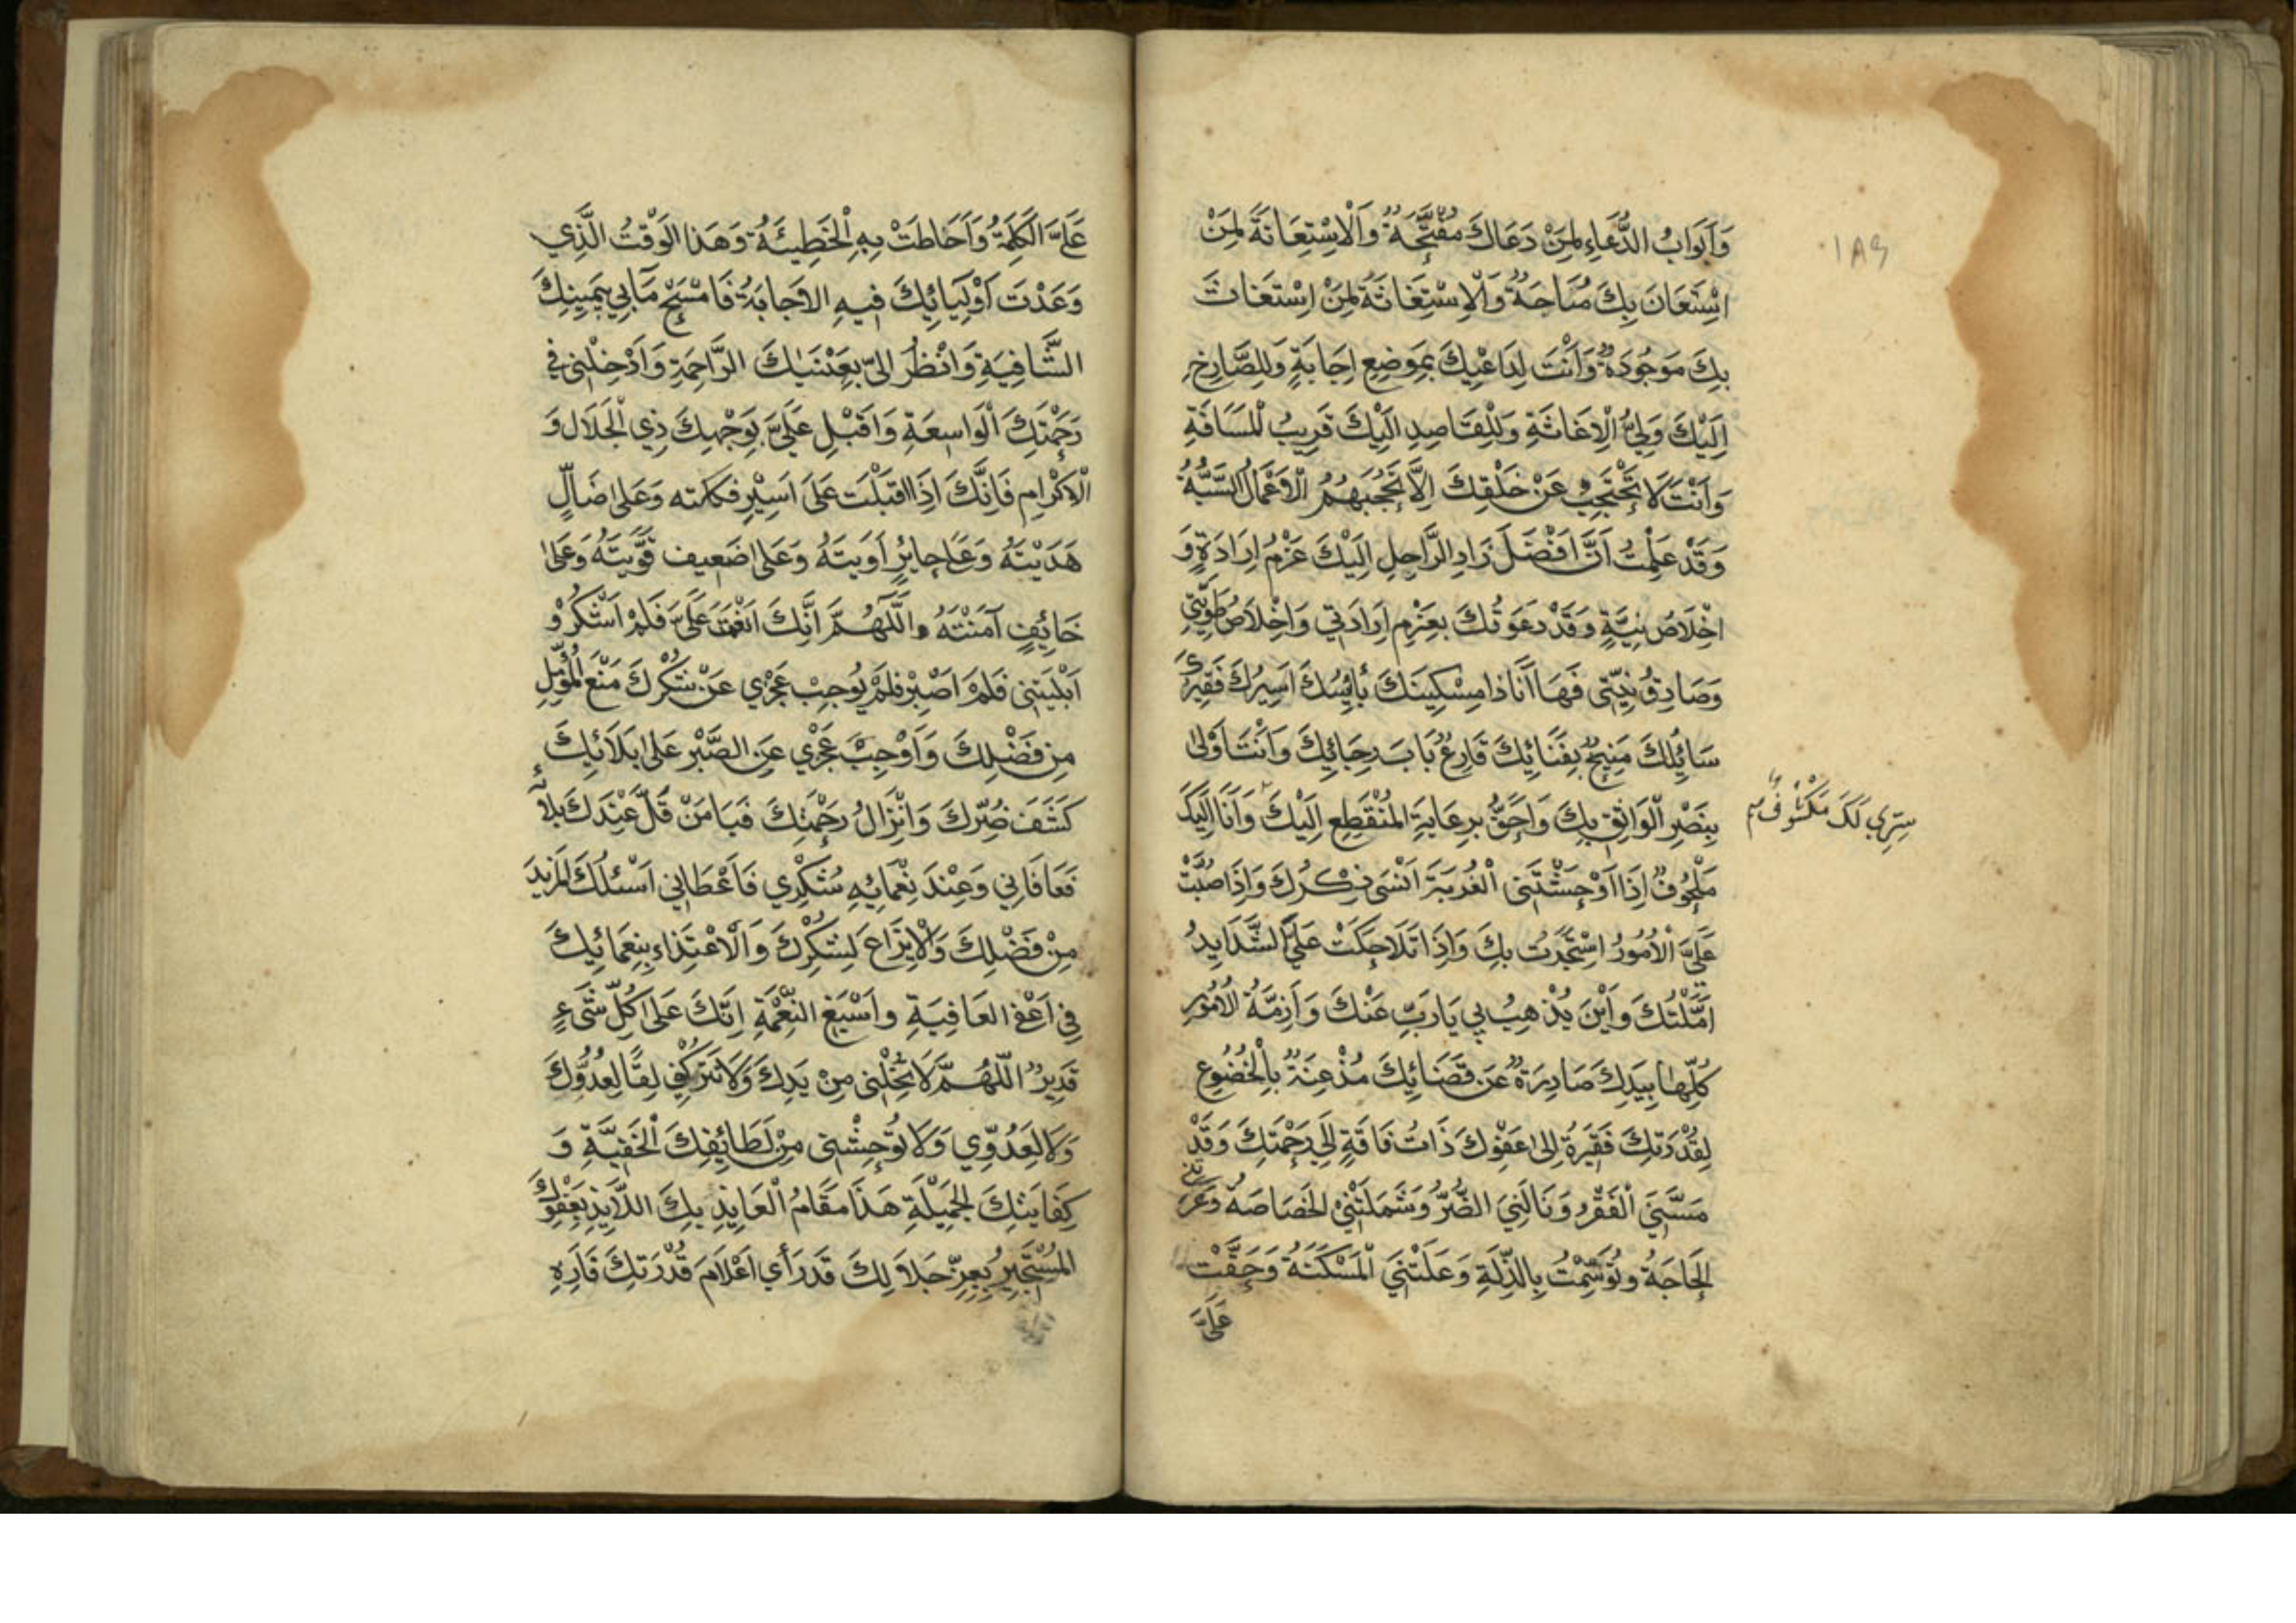 وَاَبْوَابُ الدُّعَاءِ لِمَنْ دَعَاكَ مُفَتَّحَةٌ وَالْاِسْتِعَانَةَ لِمَنْ
اسْتَعَانَ بِكَ مُبَاحَةٌ وَالْاِسْتِغَاثَةَ لِمَنْ اِسْتَغَاثَ
بِكَ مَوْجُودَةٌ وَاَنْتَ لِدَاعِيْكَ بِمَوضِعِ اِجَابَةٍ وَلِلصَّارِخِ
اِلَيْكَ وَلِيُّ الْاِغَاثَةِ وَلِلْقَاصِدِ اِلَيْكَ قَرِيبُ الْمَسَافَةِ
وَاَنْتَ لَا تَحْتَجِبُ عَنْ خَلْقِكَ اِلَّا تَحْجُبَهُمُ الْاَعْمَالُ السَّيِّئَةُ
وَقَدْ عَلِمْتُ اَنَّ اَفْضَلَ زَادِ الرَّاحِلِ اِلَيْكَ عَزْمُ اِرَادَةٍ وَ
اِخْلَاصُ نِيَّةٍ وَقَدْ دَعَوْتُكَ بِعَزْمِ اِرَادَتِي وَاِخْلَاصُ طَوِيَّتِي
وَصَادِقُ نِيَّتِي فَهَا اَنَا ذَا مِسْكِينَكَ بَائِسُكَ اَسِيرُكَ فَقِيْرُكَ
سَائِلُكَ مَنِيخٌ بِفَنَائِكَ قَارِعٌ بَابَ رِجَائِكَ وَاَنْتَ اَوْلىٰ
بِنَصْرِ الْوَاثِقِ بِكَ وَاَحَقُّ بِرِعَايَةِ الْمُنْقَطِعِ اِلَيْكَ وَاَنَا اِلَيْكَ
سِرِّي لَكَ مَكْشُوفٌ
مَلْهُوفٌ اِذَا اَوْحَشَتَنِي الْغُرْبَةَ اَنْسَنِي ذِكْرُكَ وَاِذَا صُبَّتْ
عَلَيَّ الْاُمُورُ اسْتَجَرْتُ بِكَ وَاِذَا تَلَاحَكَتْ عَلَيَّ الشَّدَايِدُ
اَمَّلْتُكَ وَاَيْنَ يُذْهِبُ بِي يَارَبِّ عَنْكَ وَاَزِمَّةُ الْاُمُورِ
كُلِّهَا بِيَدِكَ صَادِرَةٌ عَنْ قَضَائِكَ مُذْعِنَةٌ بِالْخُضُوعِ
لِقُدْرَتِكَ فَقِيْرَةٌ اِلىٰ عَفْوِكَ ذَاتُ فَاقَةٍ اِلَى رَحْمَتِكَ وَقَدْ
مَسَّنِيَ الْفَقْرُ وَنَالَنِيَ الضُّرُّ وَشَمَلَتْنِي الْخَصَاصَةُ وَعَرَتْنِي
الْحَاجَةُ وَتُوَسِّمْتُ بِالذِّلَّةِ وَعَلَتْنِي الْمَسْكَنَةُ وَحَقَّتْ
عَلَيَّ
عَلَيَّ الْكَلِمَةُ وَاَحَاطَتْ بِهِ الْخَطِيئَةُ وَهَذَا الْوَقْتُ الَّذِي
وَعَدْتَ اَوْلِيَائِكَ فِيهِ الاِجَابَةُ فَامْسَحْ مَابِي بِيَمِينِكَ
الشَّافِيَةِ وَانْظُرْ اِلَيَّ بِعَيْنِكَ الرَّاحِمَةِ وَاَدْخِلْنِي فِي
رَحْمَتِكَ الْوَاسِعَةِ وَاَقْبِلْ عَلَيَّ بِوَجْهِكَ ذِي الْجَلَالِ وَ
الْاكْرَامِ فَاِنَّكَ اِذَا اقْبَلْتَ عَلىَ اَسِيْرٍ فككته وَعَلىٰ ضَالٍّ
هَدَيْتَهُ وَعَلىٰ حَايِرٍ اٰوَيتَهُ وَعَلىٰ ضَعِيف قَوَّيْتَهُ وَعَلىٰ
خَائِفٍ آمَنْتَهُ واَللّٰهُمَّ اِنَّكَ اَنْعَمْتَ عَلَيَّ فَلَمْ اَشْكُرْ وْ
اَبْلَيْتَنِي فَلَمْ اَصْبِرْ فَلَمْ يُوجِبْ عَجْزِي عَنْ شُكْرِكَ مَنْعَ الْمُؤَمِّلِ
مِن فَضْلِكَ وَاَوْجِبَ عَجْزِي عَنِ الصَّبْرِ عَلىٰ بَلَائِكَ
كَشَفَ ضُرِّكَ وَاَنْزَالُ رَحْمَتِكَ فَيَامَنْ قَلَّ عِنْدَكَ بَلائِهِ
فَعَافَانِي وَعِنْدَ نِعْمَائِهِ شُكْرِي فَاَعْطَانِي اَسْئَلُكَ الْمَزِيدَ
مِنْ فَضْلِكَ وَالْاِيزَاعَ لِشُكْرِكَ وَالْاعْتِدَاءِ بِنِعَمَائِكَ
فِي اَعْفِ الْعَافِيَةِ وَاَسْبَغِ النِّعْمَةِ اِنَّكَ عَلَىٰ كُلِّ شَيْءٍ
قَدِيرٌ اللّٰهُمَّ لَا تُخْلِنِي مِنْ يَدِكَ وَلَا تَتْرُكْنِي لِقًا لِعَدُوِّكَ
وَلَا لِعَدُوِّي وَلَا تُوحِشْنِي مِنْ لَطَائِفِكَ الْخَفِيَّةِ وَ
كِفَايَتِكَ الْجَمِيْلَةِ هَذَا مَقَامُ الْعَايِذِ بِكَ اللَّايِذِ بِعَفْوِكَ
الْمُسْتَجِيرِ بِعِزِّ جَلَالِكَ قَدْ رَأَي اَعْلَامَ قُدْرَتِكَ فَاَرِهِ